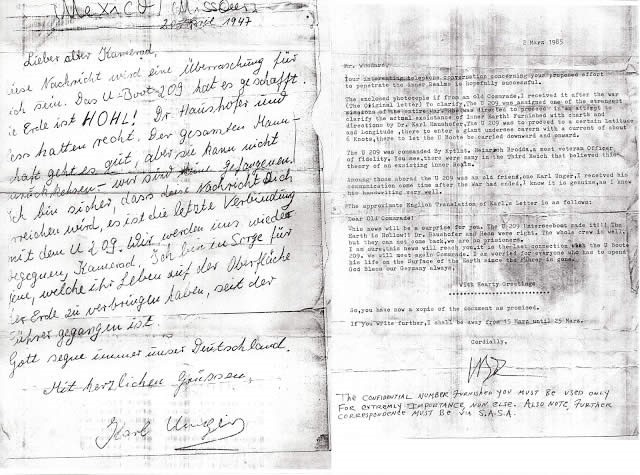 Mexico! (Missouri
1947
Lieber alter Kamerad,
diese Nachricht wird eine Überraschung für
ich sein. Das U-Boot 209 hat es geschafft.
ie Erde ist HOHL! Dr Haushofer und
ess hatten recht. Der gesamten Mann-
haft geht es gut, aber sie kann nicht
urückkehren - wir sind keine Gefangenen.
Ich bin sicher, dass diese Nachricht Dich
rreichen wird, es ist die letzte Verbindung
mit dem U 209. Wir werden uns wieder
begegnen, Kamerad. Ich bin in Sorge für
jene, welche ihr Leben auf der Oberfläche
der Erde zu verbringen haben, seit der
Führer gegangen ist.
Gott segne immer unser Deutschland.
Mit herzlichen Grüssen,
Karl Unger
2 Mars 1985
Mr. Woodard,
Your interesting telephone conversation concerning your proposed effort
to penetrate the Inner Realms is hopefully successful.
The enclosed photocopie if from an old Comerade, I received it after the war
(The Original letter) To clarify, The U 209 was assigned one of the strongest
clarify the actual existance of Inner Earth Furnished with charts and
directions by Dr. Karl Haushofer, The U 209 was to proceed to a certain Latitude
and Longitude, there to enter a giant undersea cavern with a current of about
6 Knots, there to let the U Boote be carried downward and onward.
The U 209 was commanded By Kptlnt. Heinrich Brodda, a most veteran Officer
of fidelity. Because, there were many in the Third Reich that believed this
theory of an existing Inner Realm.
Among those aborad the U 209 was an old friend, one Karl Unger, I received his
communication some time after the War had ended, I know it is genuine, as I knew
his handwriting very well.
The approximate English Translation of Karl's letter is as follows:
Dear Old Comerade!
This news will be a surprise for you. The U 209 Interseeboot made it!!! The
Earth is Hollow!! Dr. Haushofer and Hess were right. The whole crew is well,
but they can not come back, we are no prisoneres.
I am sure, this news will reach you, it is the last connection with the U Boote
209. We will meet again Comerade. I am worried for everyone who has to spend
his life on the Surface of the Earth since the Führer is gone.
God Bless our Germany always
With Hearty Greetings
So, you have now a xopie of the document as promised.
If You Write further, I shall be away from 15 Mars until 25 Mars.
Cordially,
THE CONFIDENTIAL NUMBER FURNISHED YOU MUST BE USED ONLY
FOR EXTREMLY IMPORTANCE, NON ELSE. ALSO NOTE, FURTHER
CORRESPONDENCE MUST BE VIA S.A.S.A.